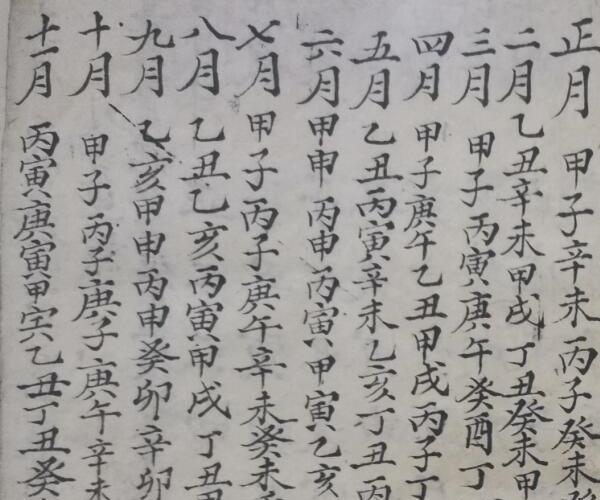 正月 甲子辛未丙子癸未
二月 乙丑辛未甲戌丁丑癸未甲
三月 甲子丙寅庚午癸酉丁
四月 甲子庚午乙丑甲戌丙子丁
五月 乙丑丙寅辛未乙亥丁丑丙
六月 甲申丙申丙寅甲寅乙亥
七月 甲子丙子庚午辛未癸未
八月 乙丑乙亥丙寅甲戌丁丑
九月 乙亥甲申丙申癸卯辛卯
十月 甲子丙子庚子庚午辛未
十一月 丙寅庚寅甲寅乙丑丁丑癸